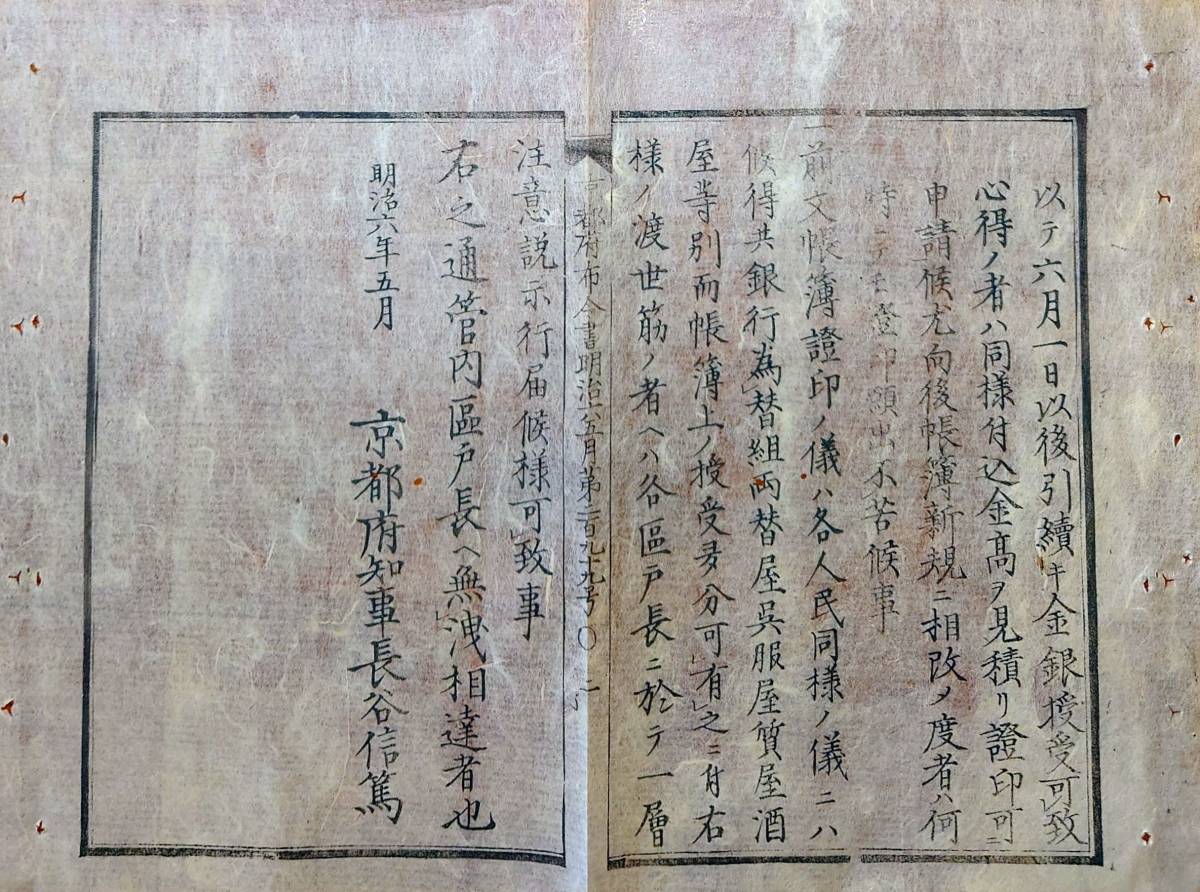 以テ六月一日以後引續キ金銀授受可致
心得ノ者ハ同様付込金高ヲ見積リ證印可ニ
申請候尤向後帳簿新規ニ相改メ度者ハ何
時ニテモ證印願出不苦候事
一前文帳簿證印ノ儀ハ各人民同様ノ儀ニハ
候得共銀行為替組両替屋呉服屋質屋酒
屋等別而帳簿上ノ授受多分可有之ニ付右
様ノ渡世筋ノ者ヘハ各區戸長ニ於テ一層
京都府布令書明治六年五月第二百九十九号〇 二
注意説示行届候様可致事
右之通管内區戸長ヘ無洩相達者也
明治六年五月
京都府知事長谷信篤